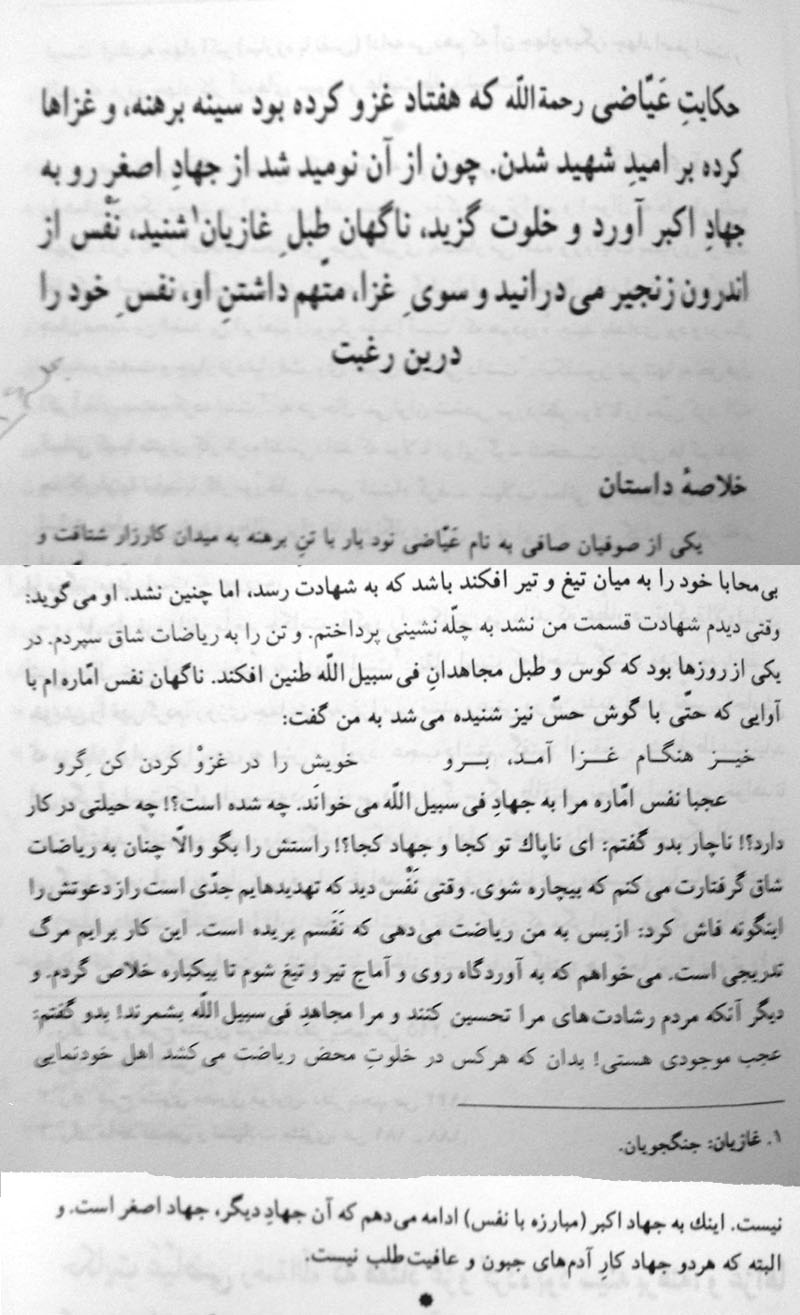 حکایتِ عَیّاضی رحمة اللّه که هفتاد غزو کرده بود سینه برهنه، و غزاها
کرده بر امیدِ شهید شدن. چون از آن نومید شد از جهادِ اصغر رو به
جهادِ اکبر آورد و خلوت گزید، ناگهان طبلِ غازیان۱ شنید، نَفْس از
اندرون زنجیر می‌درانید و سویِ غزا، متّهم داشتن او، نفسِ خود را
درین رغبت
خلاصهٔ داستان
یکی از صوفیان صافی به نام عَیّاضی نود بار با تنِ برهنه به میدان کارزار شتافت و
بی‌محابا خود را به میان تیغ و تیر افکند باشد که به شهادت رسد، اما چنین نشد. او می‌گوید:
وقتی دیدم شهادت قسمت من نشد به چلّه نشینی پرداختم. و تن را به ریاضات شاق سپردم. در
یکی از روزها بود که کوس و طبل مجاهدانِ فی سبیل اللّه طنین افکند. ناگهان نفس امّاره ام با
آوایی که حتّی با گوش حسّ نیز شنیده می‌شد به من گفت:
خیز هنگام غزا آمد، برو    خویش را در غزوْ کردن کن گِرو
عجبا نفس امّاره مرا به جهادِ فی سبیل اللّه می‌خوانَد. چه شده است؟! چه حیلتی در کار
دارد؟! ناچار بدو گفتم: ای ناپاك تو کجا و جهاد کجا؟! راستش را بگو والّا چنان به ریاضات
شاق گرفتارت می‌کنم که بیچاره شوی. وقتی نَفْس دید که تهدیدهایم جدّی است راز دعوتش را
اینگونه فاش کرد: ازبس به من ریاضت می‌دهی که نَفَسم بریده است. این کار برایم مرگ
تدریجی است. می‌خواهم که به آوردگاه روی و آماج تیر و تیغ شوم تا بیکباره خلاص گردم. و
دیگر آنکه مردم رشادت‌های مرا تحسین کنند و مرا مجاهدِ فی سبیل اللّه بشمرند! بدو گفتم:
عجب موجودی هستی! بدان که هرکس در خلوتِ محض ریاضت می‌کشد اهل خودنمایی
۱. غازیان: جنگجویان.
نیست. اینك به جهاد اکبر (مبارزه با نفس) ادامه می‌دهم که آن جهادِ دیگر، جهاد اصغر است. و
البته که هردو جهاد کارِ آدم‌های جبون و عافیت‌طلب نیست.